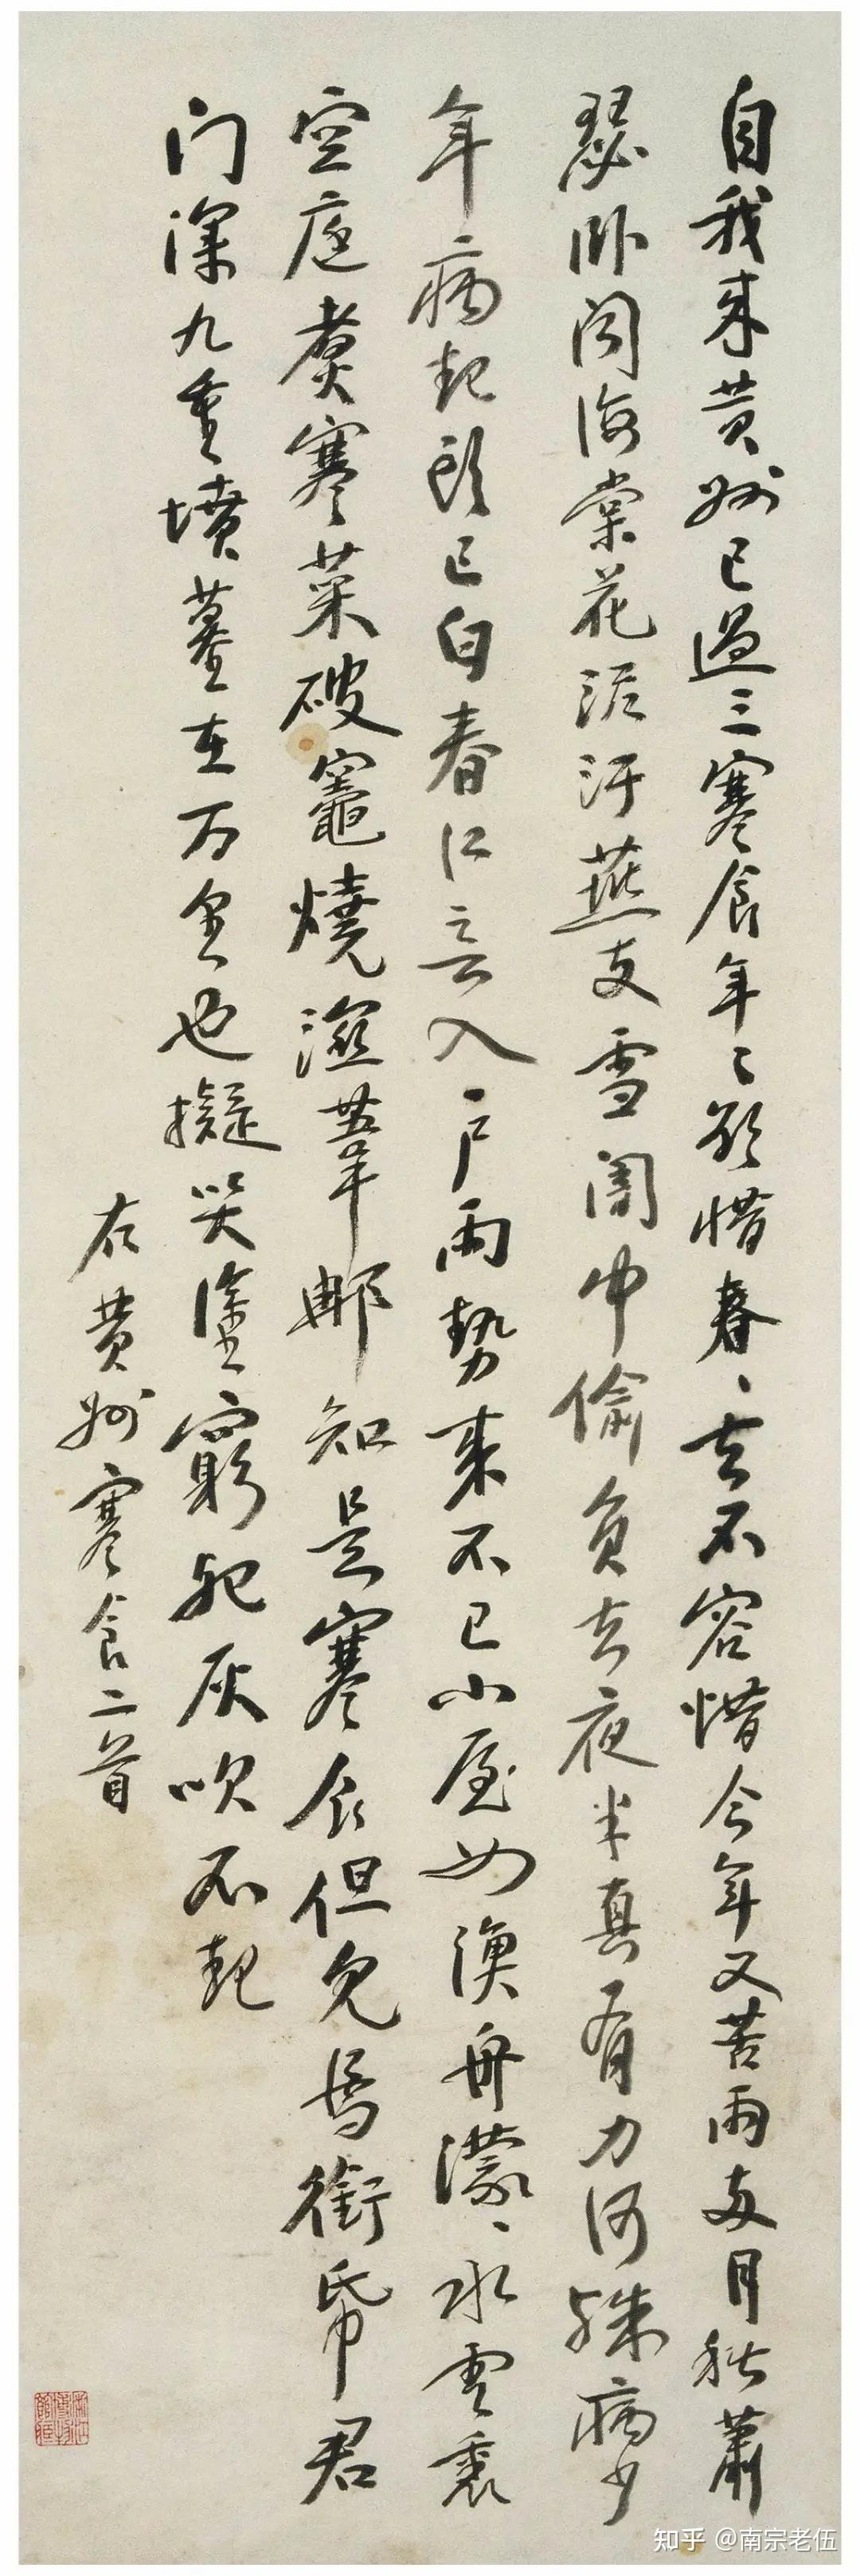 自我来黄州已過三寒食年〻欲惜春〻去不容惜今年又苦雨兩月秋蕭
瑟卧闻海棠花泥汙燕支雪闇中偷負去夜半真有力何殊病少
年病起頭已白春江入户雨势来不已小屋如漁舟濛〻水雲裏
空庖煮寒菜破竈燒濕葦那知是寒食但見烏銜帋君
门深九重墳墓在万里也擬哭塗窮死灰吹不起
右黄州寒食二首
知乎 @南宗老伍